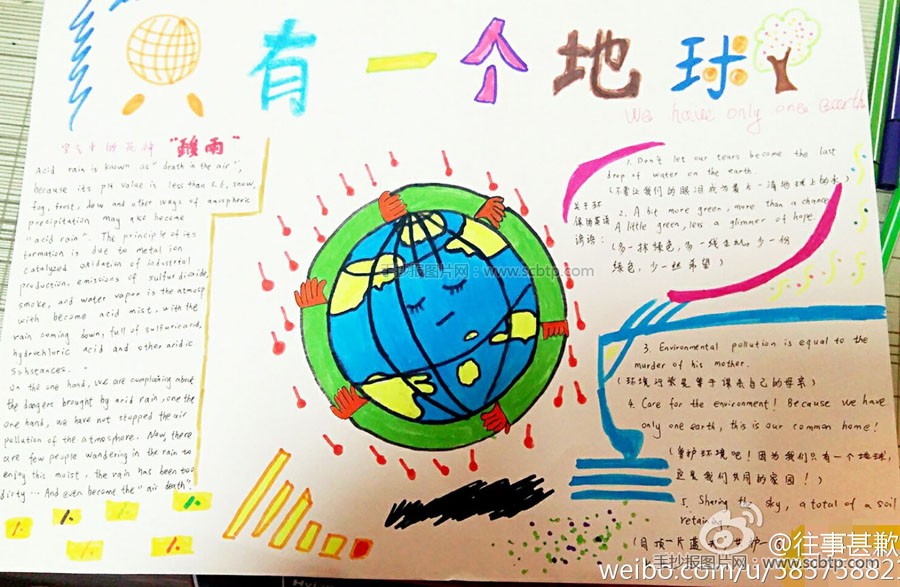 有一个地球
We have only one earth
"酸雨"
Acid rain is known as "death in the air",
because its pH value is less than 5.6, snow,
fog, frost, dew and other ways of atmospheric
precipitation may also become
"acid rain". The principle of its
formation is due to metal ion
catalyzed oxidation of industrial
production, emissions of sulfur dioxide,
smoke, and water vapor in the atmosp
with become acid mist, with the
rain coming down, full of sulfuric acid,
hydrochloric acid and other acidic
substances.
On the one hand, we are complaining about
the dangers brought by acid rain, one the
one hand, we have not stopped the air
pollution of the atmosphere. Now, there
are few people wandering in the rain to
enjoy this moist, the rain has been too
dirty ... And even become the "air death".
关于环
保的英语
谚语:
1. Don't let our tears become the last
drop of water on the earth.
(不要让我们的眼泪成为最后一滴地球上的水)
2. A bit more green, more than a chance
A little green, less a glimmer of hope.
(多一抹绿色,多一线生机,少一份
绿色,少一丝希望)
3. Environmental pollution is equal to the
murder of his mother.
(环境污染是等于谋杀自己的母亲)
4. Care for the environment! Because we have
only one earth, this is our common home!
(爱护环境吧!因为我们只有一个地球,
这是我们共同的家园!)
5. Sharing the sky, a total of a soil
retaining.
手抄报图片网:www.scbtp.com
@往事甚歉
手抄报图片网 www.scbtp.com